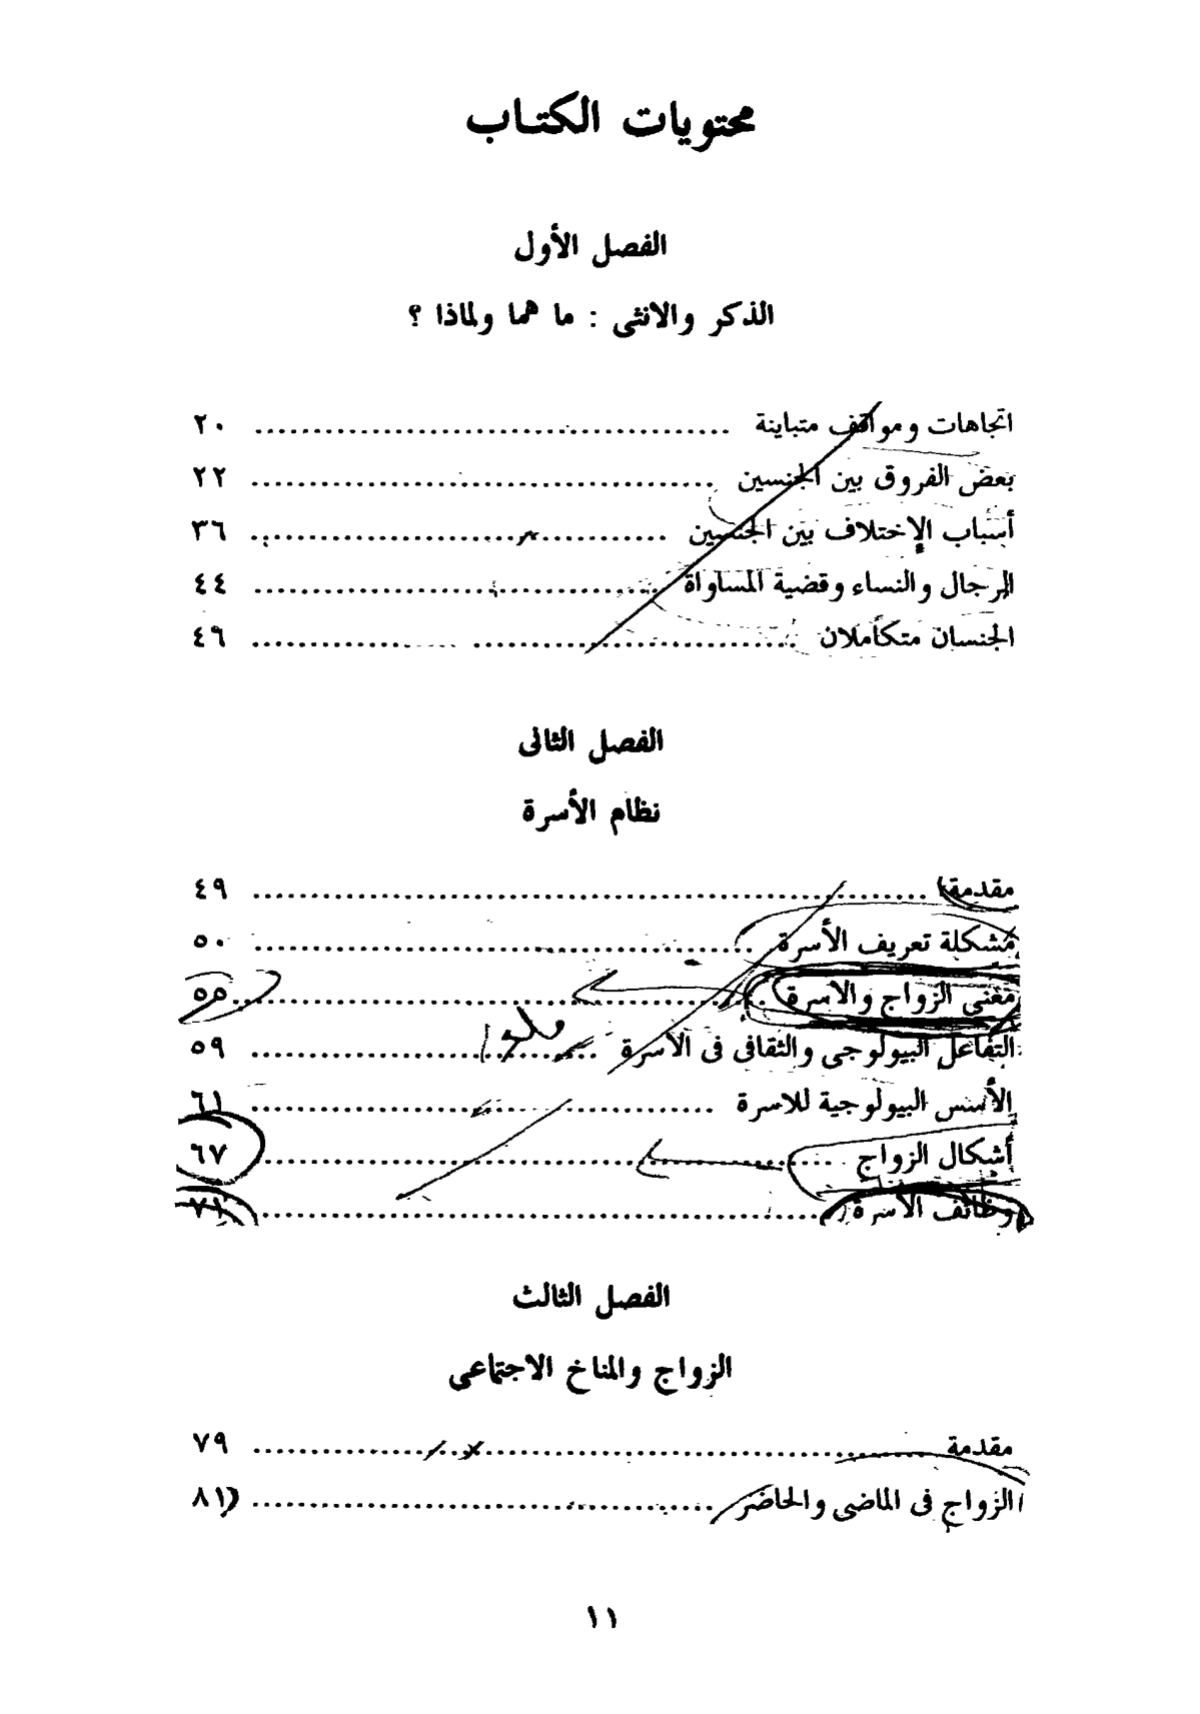 محتويات الكتاب
الفصل الأول
الذكر والانثى : ما هما ولماذا ؟
اتجاهات ومواقف متباينة ........ ٢٠
بعض الفروق بين الجنسين ........ ٢٢
أسباب الإختلاف بين الجنسين ........ ٣٦
الرجال والنساء وقضية المساواة ........ ٤٤
الجنسان متكاملان ........ ٤٦
الفصل الثانى
نظام الأسرة
مقدمة ........ ٤٩
مشكلة تعريف الأسرة ........ ٥٠
معنى الزواج والأسرة ........ ٥٥
التفاعل البيولوجى والثقافى فى الأسرة ........ ٥٩
الأسس البيولوجية للاسرة ........ ٦١
أشكال الزواج ........ ٦٧
وظائف الأسرة ........ ٧١
الفصل الثالث
الزواج والمناخ الاجتماعى
مقدمة ........ ٧٩
الزواج فى الماضى والحاضر ........ ٨١
١١